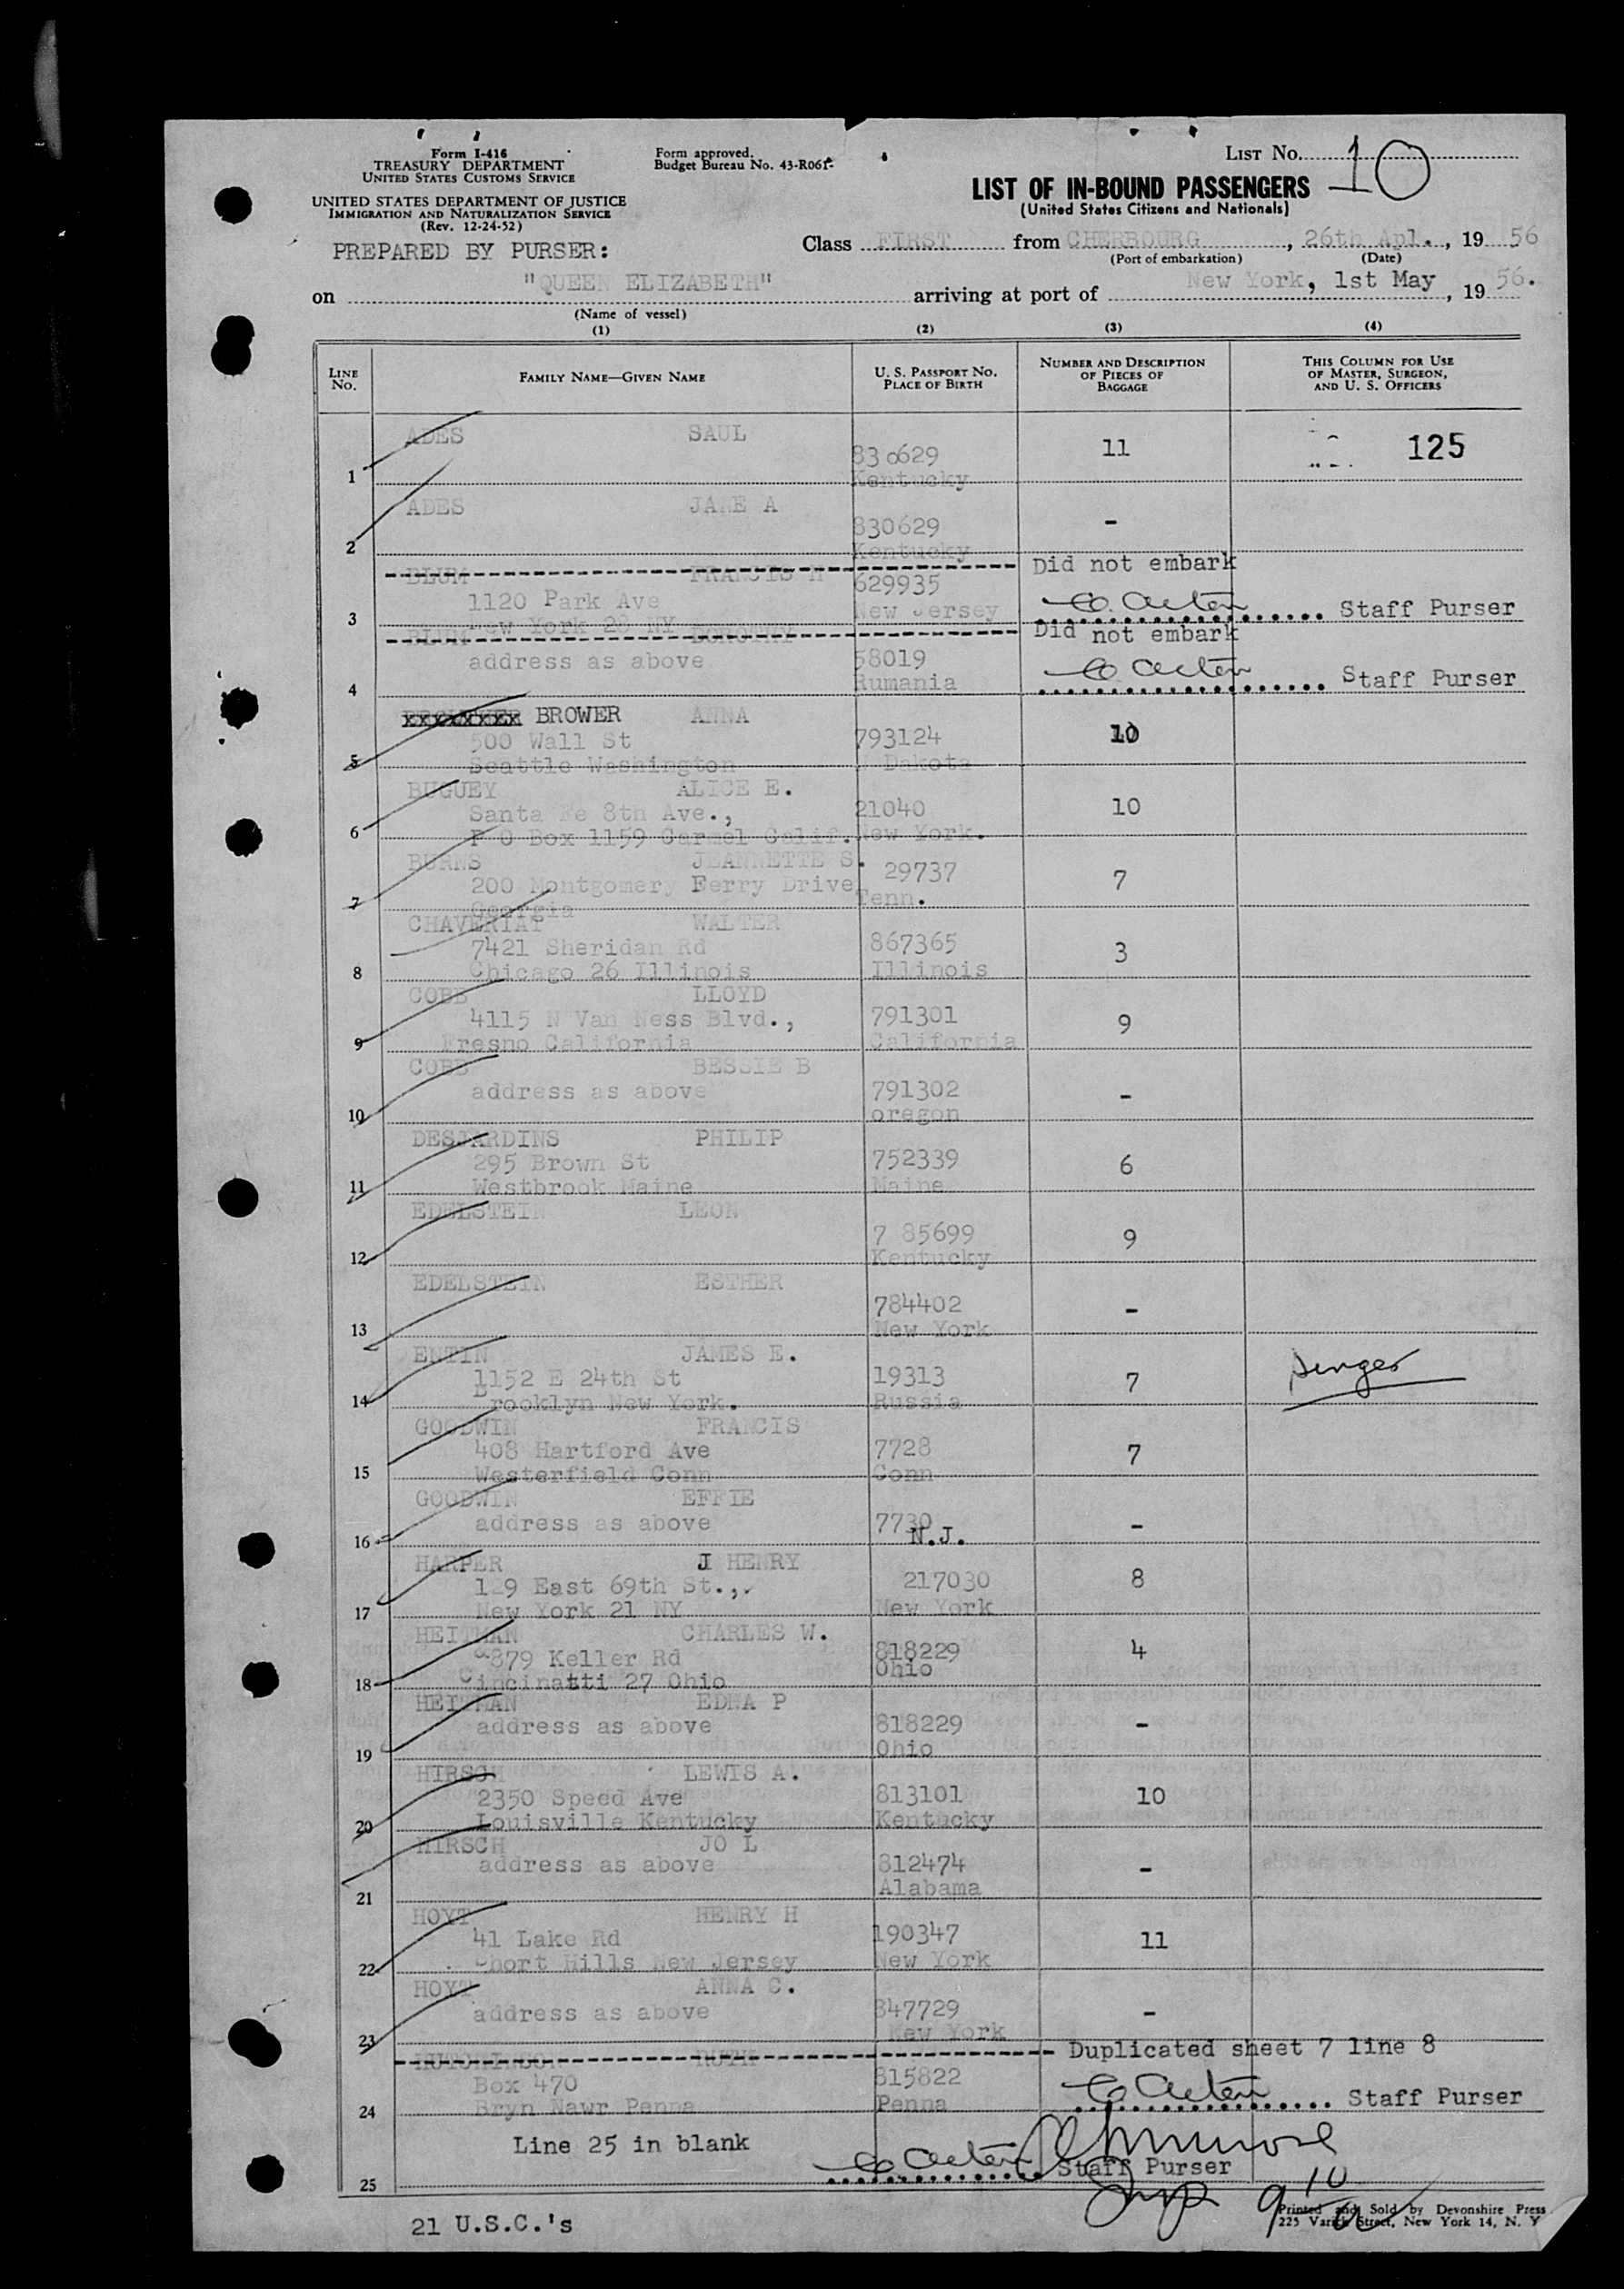 Form I-416
TREASURY DEPARTMENT
UNITED STATES CUSTOMS SERVICE
UNITED STATES DEPARTMENT OF JUSTICE
IMMIGRATION AND NATURALIZATION SERVICE
(Rev. 12-24-52)
Form approved.
Budget Bureau No. 43-R061-
LIST NO. 10
LIST OF IN-BOUND PASSENGERS
(United States Citizens and Nationals)
PREPARED BY PURSER:
Class FIRST from CHERBOURG, 26th Apl., 19 56
(Port of embarkation) (Date)
on "QUEEN ELIZABETH" arriving at port of New York, 1st May, 19 56.
(Name of vessel)
(1) (2) (3) (4)
LINE NO. FAMILY NAME—GIVEN NAME U. S. PASSPORT NO. PLACE OF BIRTH NUMBER AND DESCRIPTION OF PIECES OF BAGGAGE THIS COLUMN FOR USE OF MASTER, SURGEON, AND U. S. OFFICERS
ADES SAUL
830629 11 125
1 Kentucky
ADES JANE A
830629 -
2 Kentucky
BLUM FRANCIS H Did not embark
1120 Park Ave 629935
3 New York 28 NY New Jersey Staff Purser
BLUM DOROTHY Did not embark
address as above 58019
4 Rumania Staff Purser
BROWER ANNA
500 Wall St 793124 10
5 Seattle Washington Dakota
BUGUEY ALICE E.
Santa Fe 8th Ave., 21040 10
6 P O Box 1159 Carmel Calif. New York.
BURNS JEANNETTE S.
200 Montgomery Ferry Drive 29737 7
7 Georgia Tenn.
CHAVERIAT WALTER
7421 Sheridan Rd 867365 3
8 Chicago 26 Illinois Illinois
COBB LLOYD
4115 N Van Ness Blvd., 791301 9
9 Fresno California California
COBB BESSIE B
address as above 791302 -
10 oregon
DESJARDINS PHILIP
295 Brown St 752339 6
11 Westbrook Maine Maine
EDELSTEIN LEON
7 85699 9
12 Kentucky
EDELSTEIN ESTHER
784402 -
13 New York
ENTIN JAMES E.
1152 E 24th St 19313 7
14 Brooklyn New York. Russia
GOODWIN FRANCIS
408 Hartford Ave 7728 7
15 Westerfield Conn Conn
GOODWIN EFFIE
address as above 7730 -
16 N.J.
HARPER J HENRY
129 East 69th St., 217030 8
17 New York 21 NY New York
HEITMAN CHARLES W.
879 Keller Rd 818229 4
18 Cincinatti 27 Ohio Ohio
HEITMAN EDNA P
address as above 818229 -
19 Ohio
HIRSCH LEWIS A.
2350 Speed Ave 813101 10
20 Louisville Kentucky Kentucky
HIRSCH JO L
address as above 812474 -
21 Alabama
HOYT HENRY H
41 Lake Rd 190347 11
22 Short Hills New Jersey New York
HOYT ANNA C.
address as above 847729 -
23 New York
HUTCHINSON RUTH Duplicated sheet 7 line 8
Box 470 815822
24 Bryn Nawr Penna Penna Staff Purser
Line 25 in blank
25 Staff Purser
21 U.S.C.'s
Printed and Sold by Devonshire Press
225 Varick Street, New York 14, N. Y